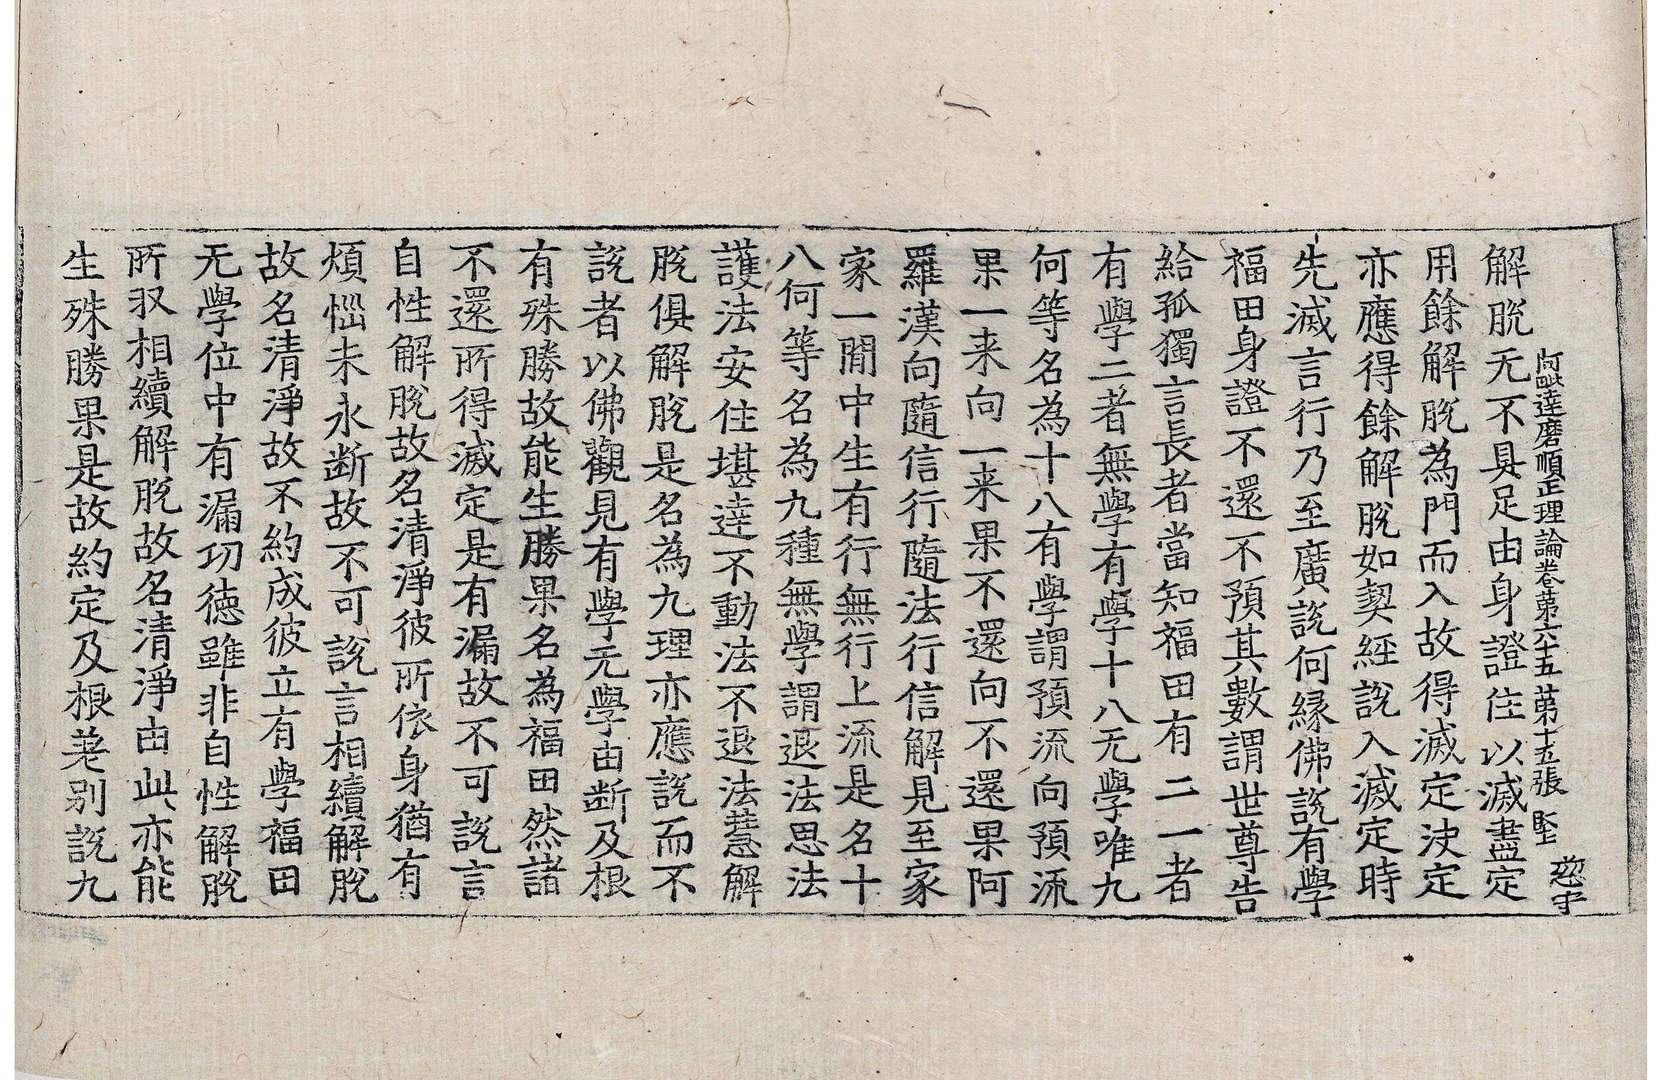 阿毗達磨順正理論卷第六十五 第十五張 堅
解脫无不具足由身證住以滅盡定
用餘解脫為門而入故得滅定決定
亦應得餘解脫如契經說入滅定時
先滅言行乃至廣說何縁佛說有學
福田身證不還不預其數謂世尊告
給孤獨言長者當知福田有二一者
有學二者無學有學十八无學唯九
何等名為十八有學謂預流向預流
果一来向一来果不還向不還果阿
羅漢向隨信行隨法行信解見至家
家一閒中生有行無行上流是名十
八何等名為九種無學謂退法思法
護法安住堪達不動法不退法慧解
脫俱解脫是名為九理亦應說而不
說者以佛觀見有學无學由断及根
有殊勝故能生勝果名為福田然諸
不還所得滅定是有漏故不可說言
自性解脫故名清淨彼所依身猶有
煩惱未永断故不可說言相續解脫
故名清淨故不約成彼立有學福田
无學位中有漏功德雖非自性解脫
所収相續解脫故名清淨由此亦能
生殊勝果是故約定及根差別說九